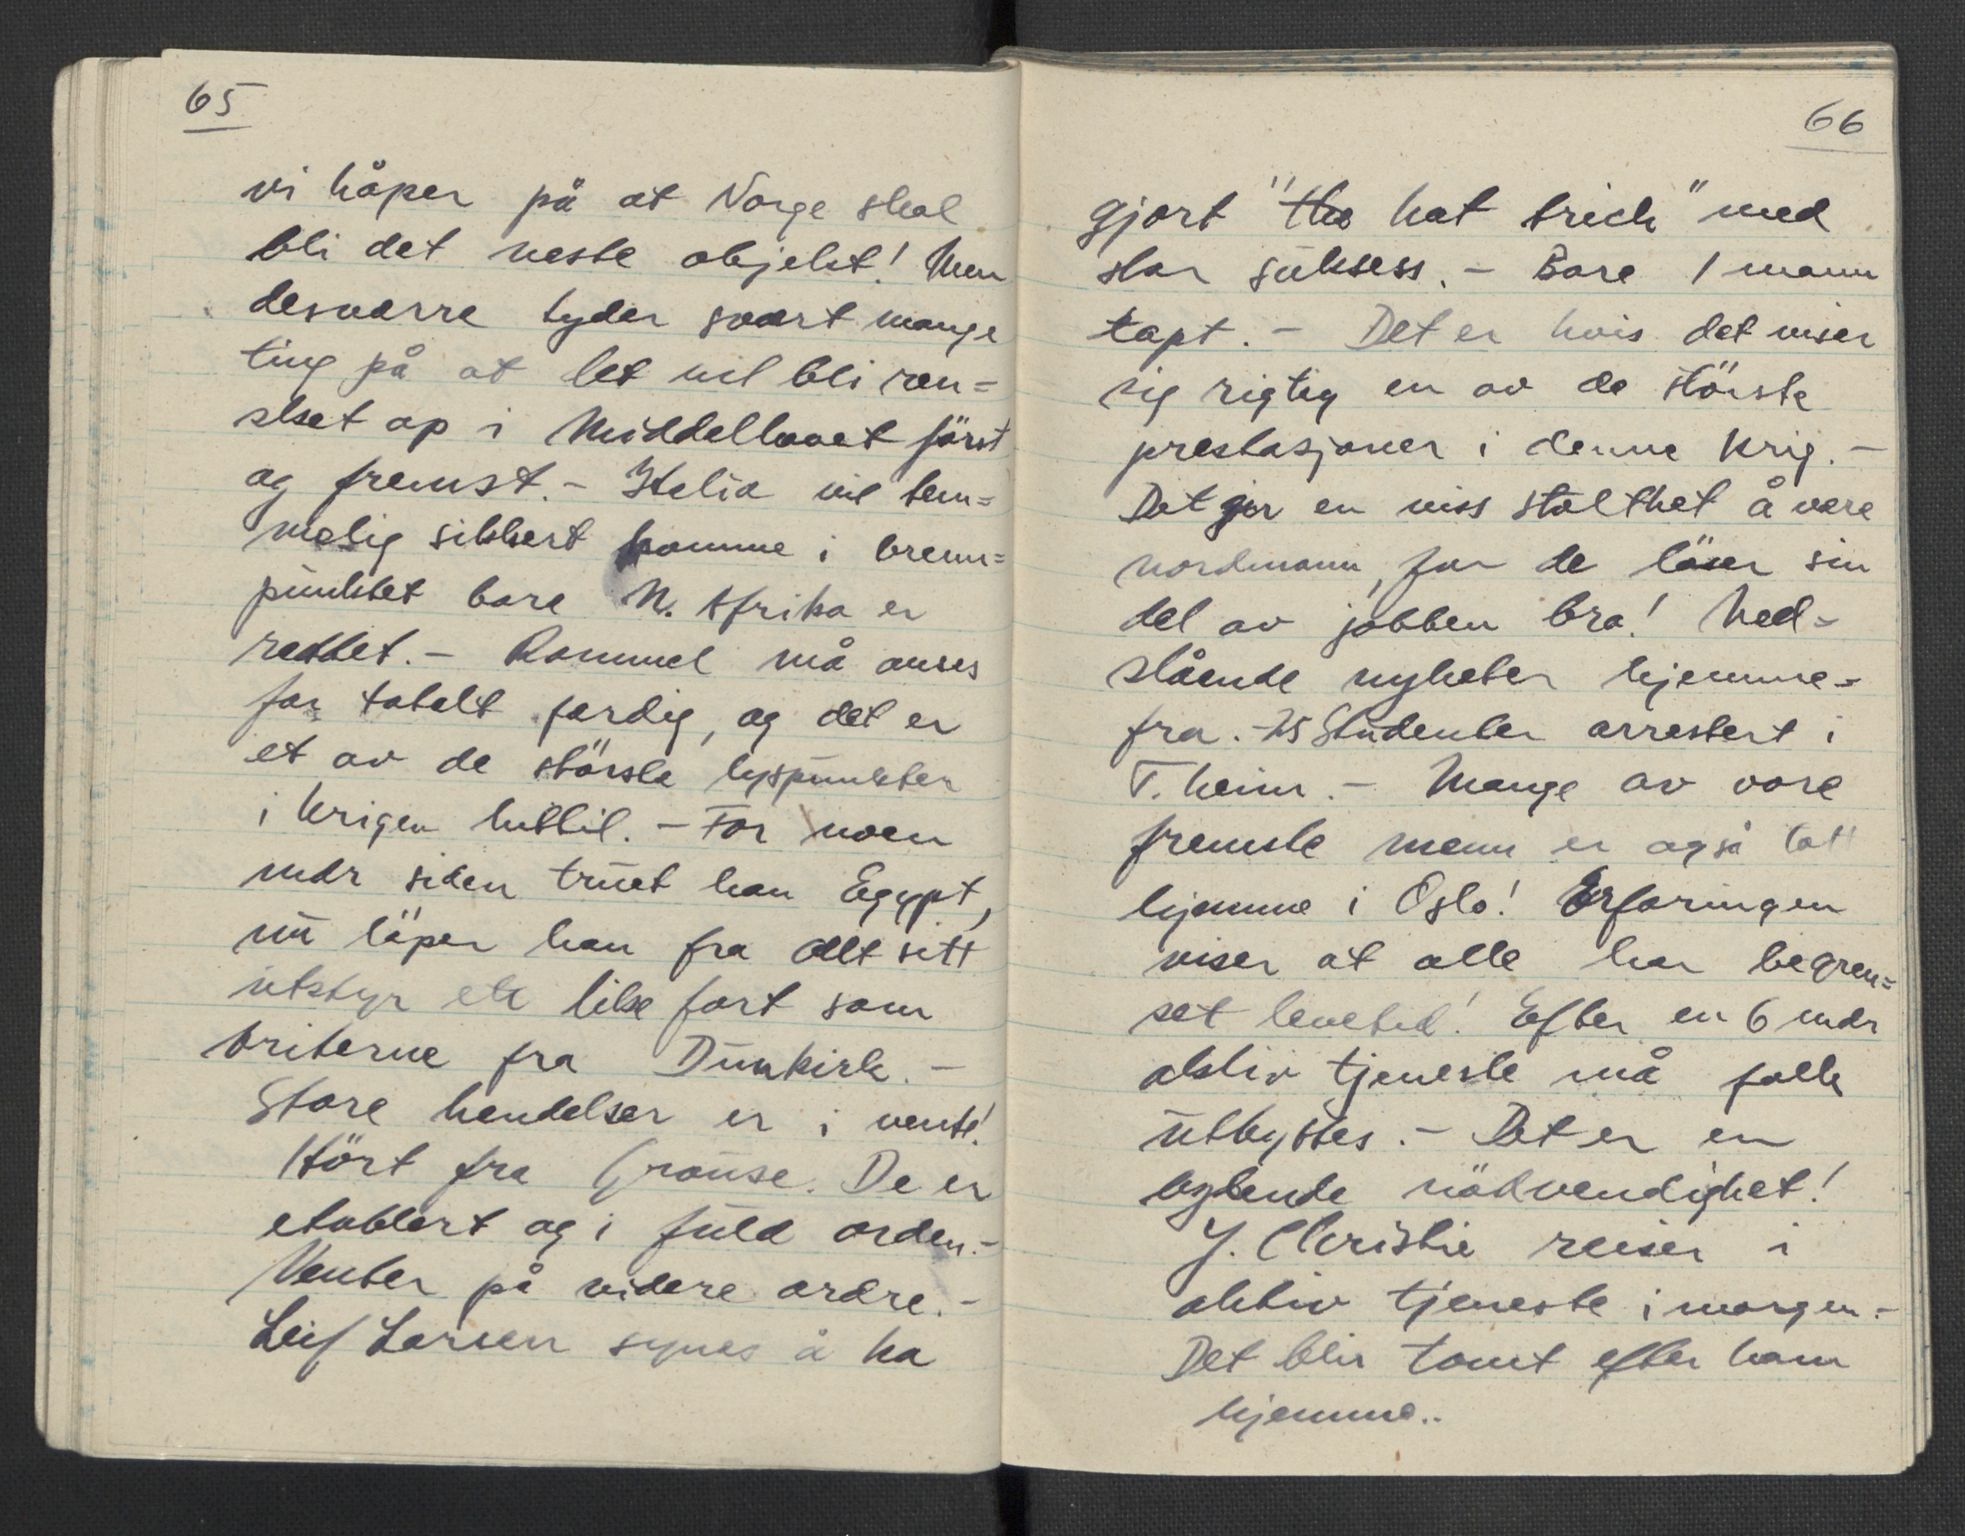 65
vi håper på at Norge skal
bli det neste objekt! Men
desværre tyder svært mange
ting på at det vil bli ren=
sket op i Middelhavet först
og fremst. - Italia vil tem=
melig sikkert komme i brenn=
punktet bare N. Afrika er
reddet. - Rommel må anses
for totalt ferdig, og det er
et av de största lyspunkter
i krigen hittil. - For noen
mdr siden truet han Egypt,
nu löper han fra alt sitt
utstyr etc like fort som
briterne fra Dunkirk. -
Store hendelser er i vente!
Hört fra Grouse. De er
etablert og i fuld orden. -
Venter på videre ordre. -
Leif Larsen synes å ha
66
gjort "the hat trick" med
stor suksess. - Bare 1 mann
tapt. - Det er hvis det viser
sig rigtig en av de störste
prestasjoner i denne krig. -
Det gir en viss stolthet å være
nordmann, for de löser sin
del av jobben bra! Ned=
slående nyheter hjemme=
fra. - 25 Studenter arrestert i
T.heim. - Mange av vore
fremste menn er også tatt
hjemme i Oslo! Erfaringen
viser at alle har begren=
set levetid! Efter en 6 mdr
aktiv tjeneste må folk
utbyttes. - Det er en
bydende nödvendighet!
J. Christie reiser i
aktiv tjeneste i morgen -
Det blir tomt efter ham
hjemme..